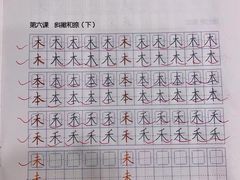 第六课 斜撇和捺（下）
木木木木木木木木木木
木木木木木木木木木木
本本本本本本本本本本
本本本本本本本本本本
禾禾禾禾禾禾禾禾禾禾
禾禾禾禾禾禾禾禾禾禾
未 未